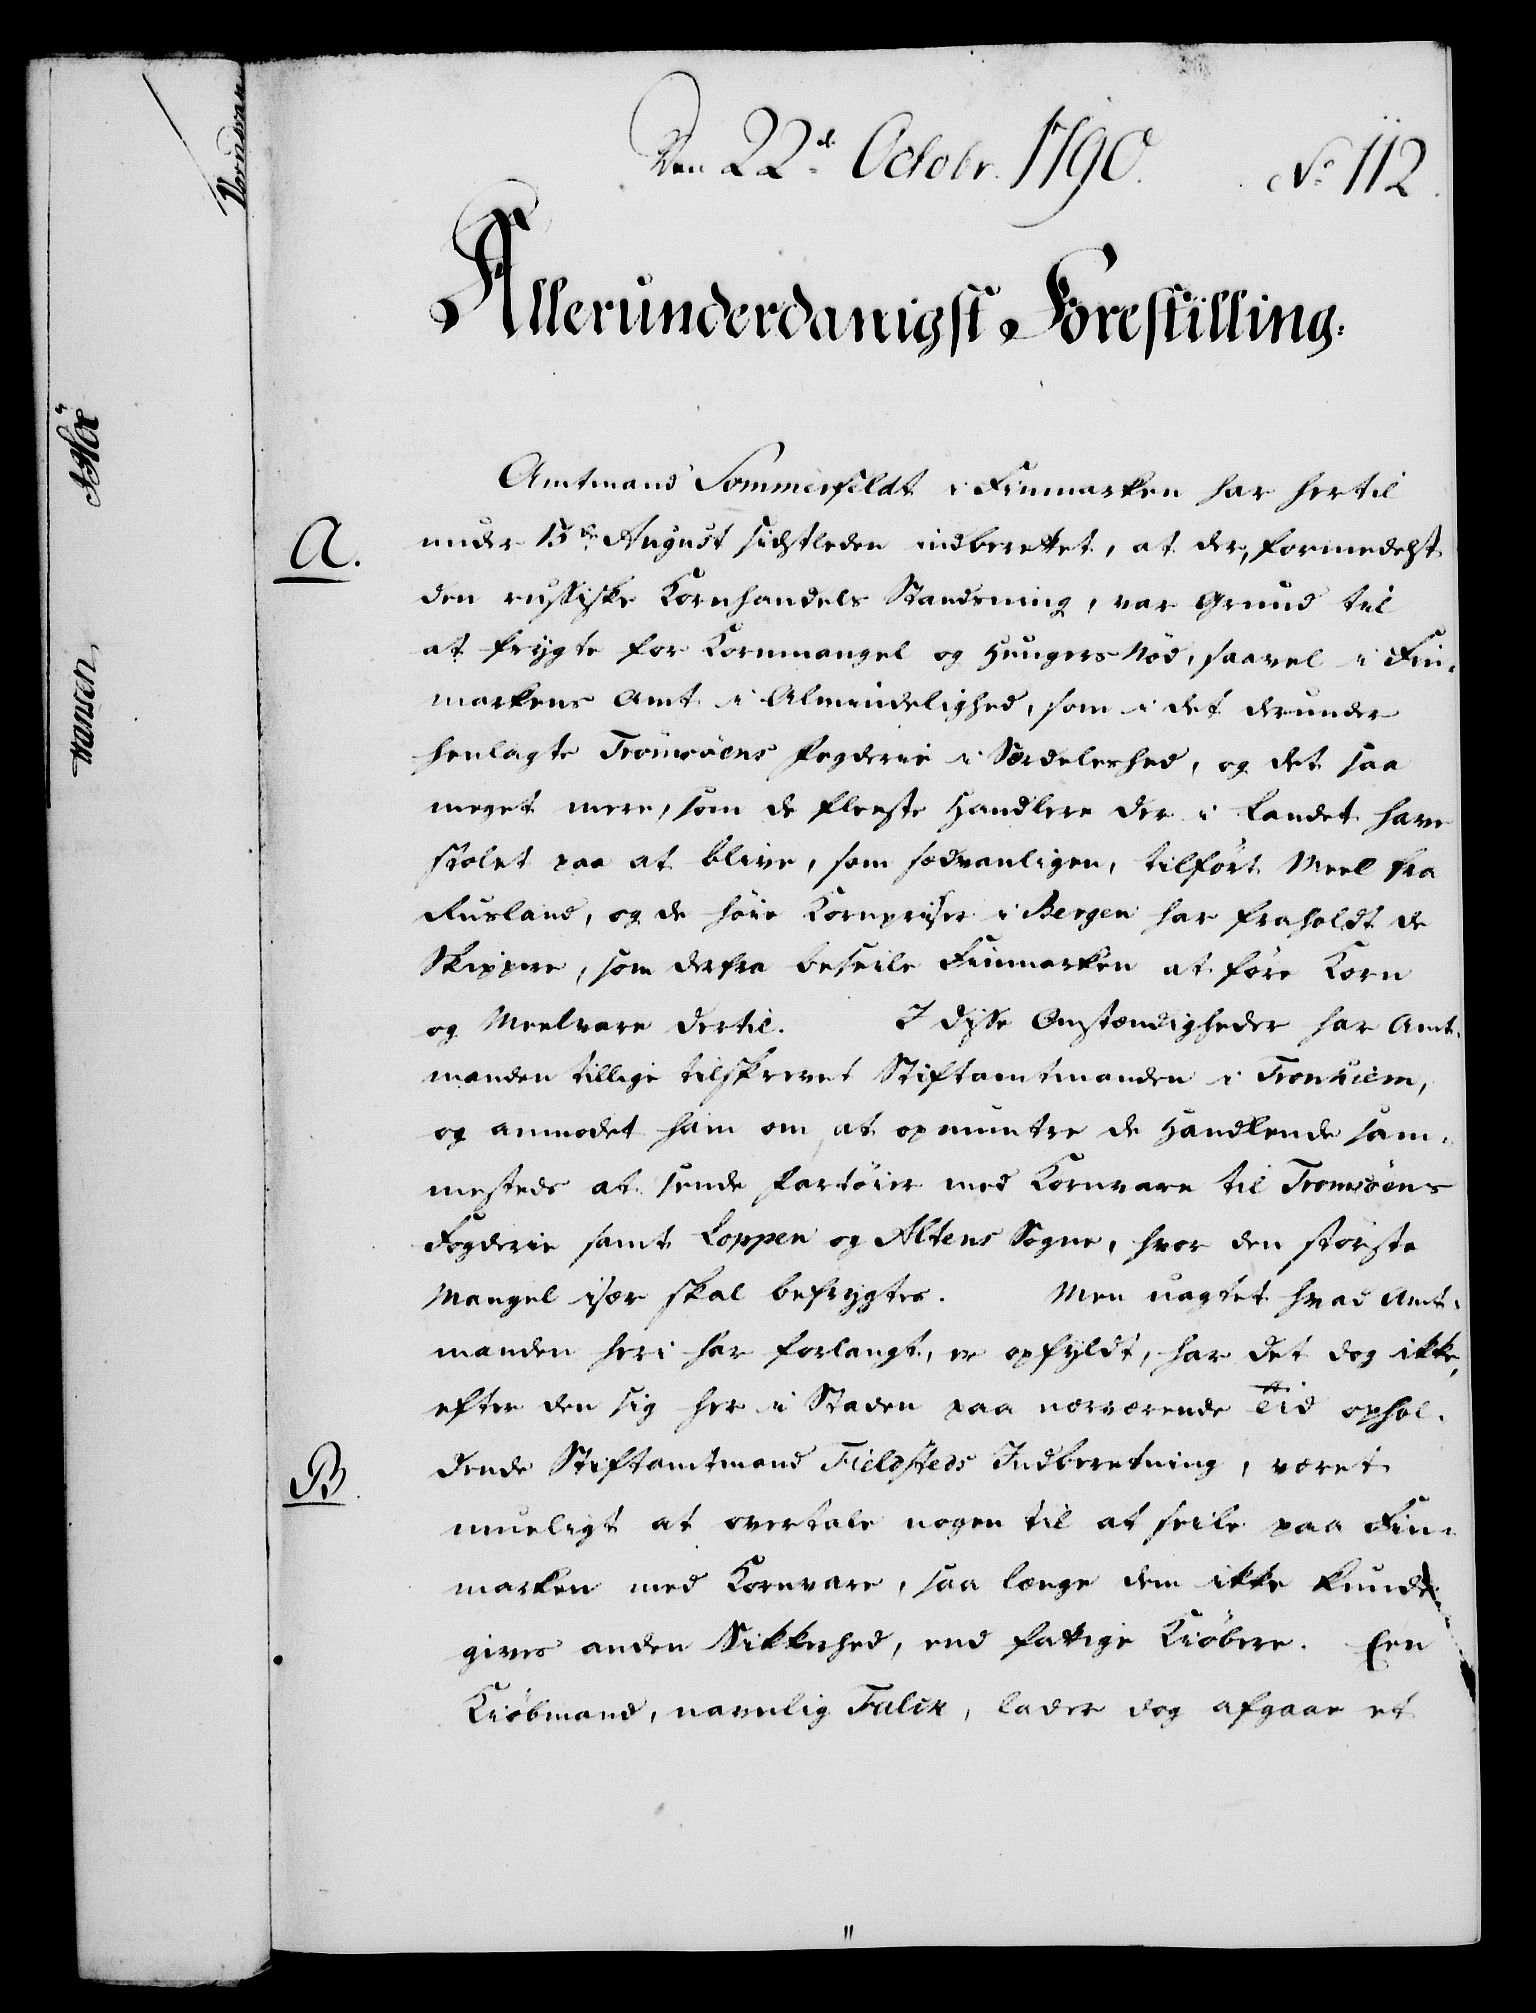 Den 22de Octobr. 1790. No 112.
Allerunderdanigst Forestilling.
Amtmand Sommerfeldt i Finmarken har hertil
A. under 15de August sidstleden indberettet, at der, formedelst
den russiske Kornhandels Standsning, var Grund til
at frygte for Kornmangel og Hungers Nöd, saavel i Fin-
markens Amt i Almindelighed, som i det derunder
henlagte Tromsöens Fogderie i Særdeleshed, og det saa
meget mere, som de fleeste Handlere der i Landet have
stolet paa at blive, som sædvanligen, tilfört Meel fra
Rusland, og de höie Kornpriser i Bergen har fraholdt de
Skippere, som derfra beseile Finmarken at före Korn
og Meelvare dertil. I disse Omstændigheder har Amt-
manden tillige tilskrevet Stiftamtmanden i Tronhiem,
og anmodet ham om at opmuntre de Handlende sam-
mesteds at sende Fartöier med Kornvare til Tromsöens
Fogderie samt Loppen og Altens Sogne, hvor den störste
Mangel især skal befrygtes. Men uagtet hvad Amt-
manden heri har forlangt, er opfyldt, har det dog ikke,
efter den sig her i Staden paa nærværende Tid ophol-
B. dende Stiftamtmand Fieldsteds Indberetning, været
mueligt at overtale nogen til at seile paa Fin-
marken med Kornvare, saa længe dem ikke kunde
gives anden Sikkerhed, end fattige Kiöbere. Een
Kiöbmand, navnlig Falck, lader dog afgaae et
Hansen,